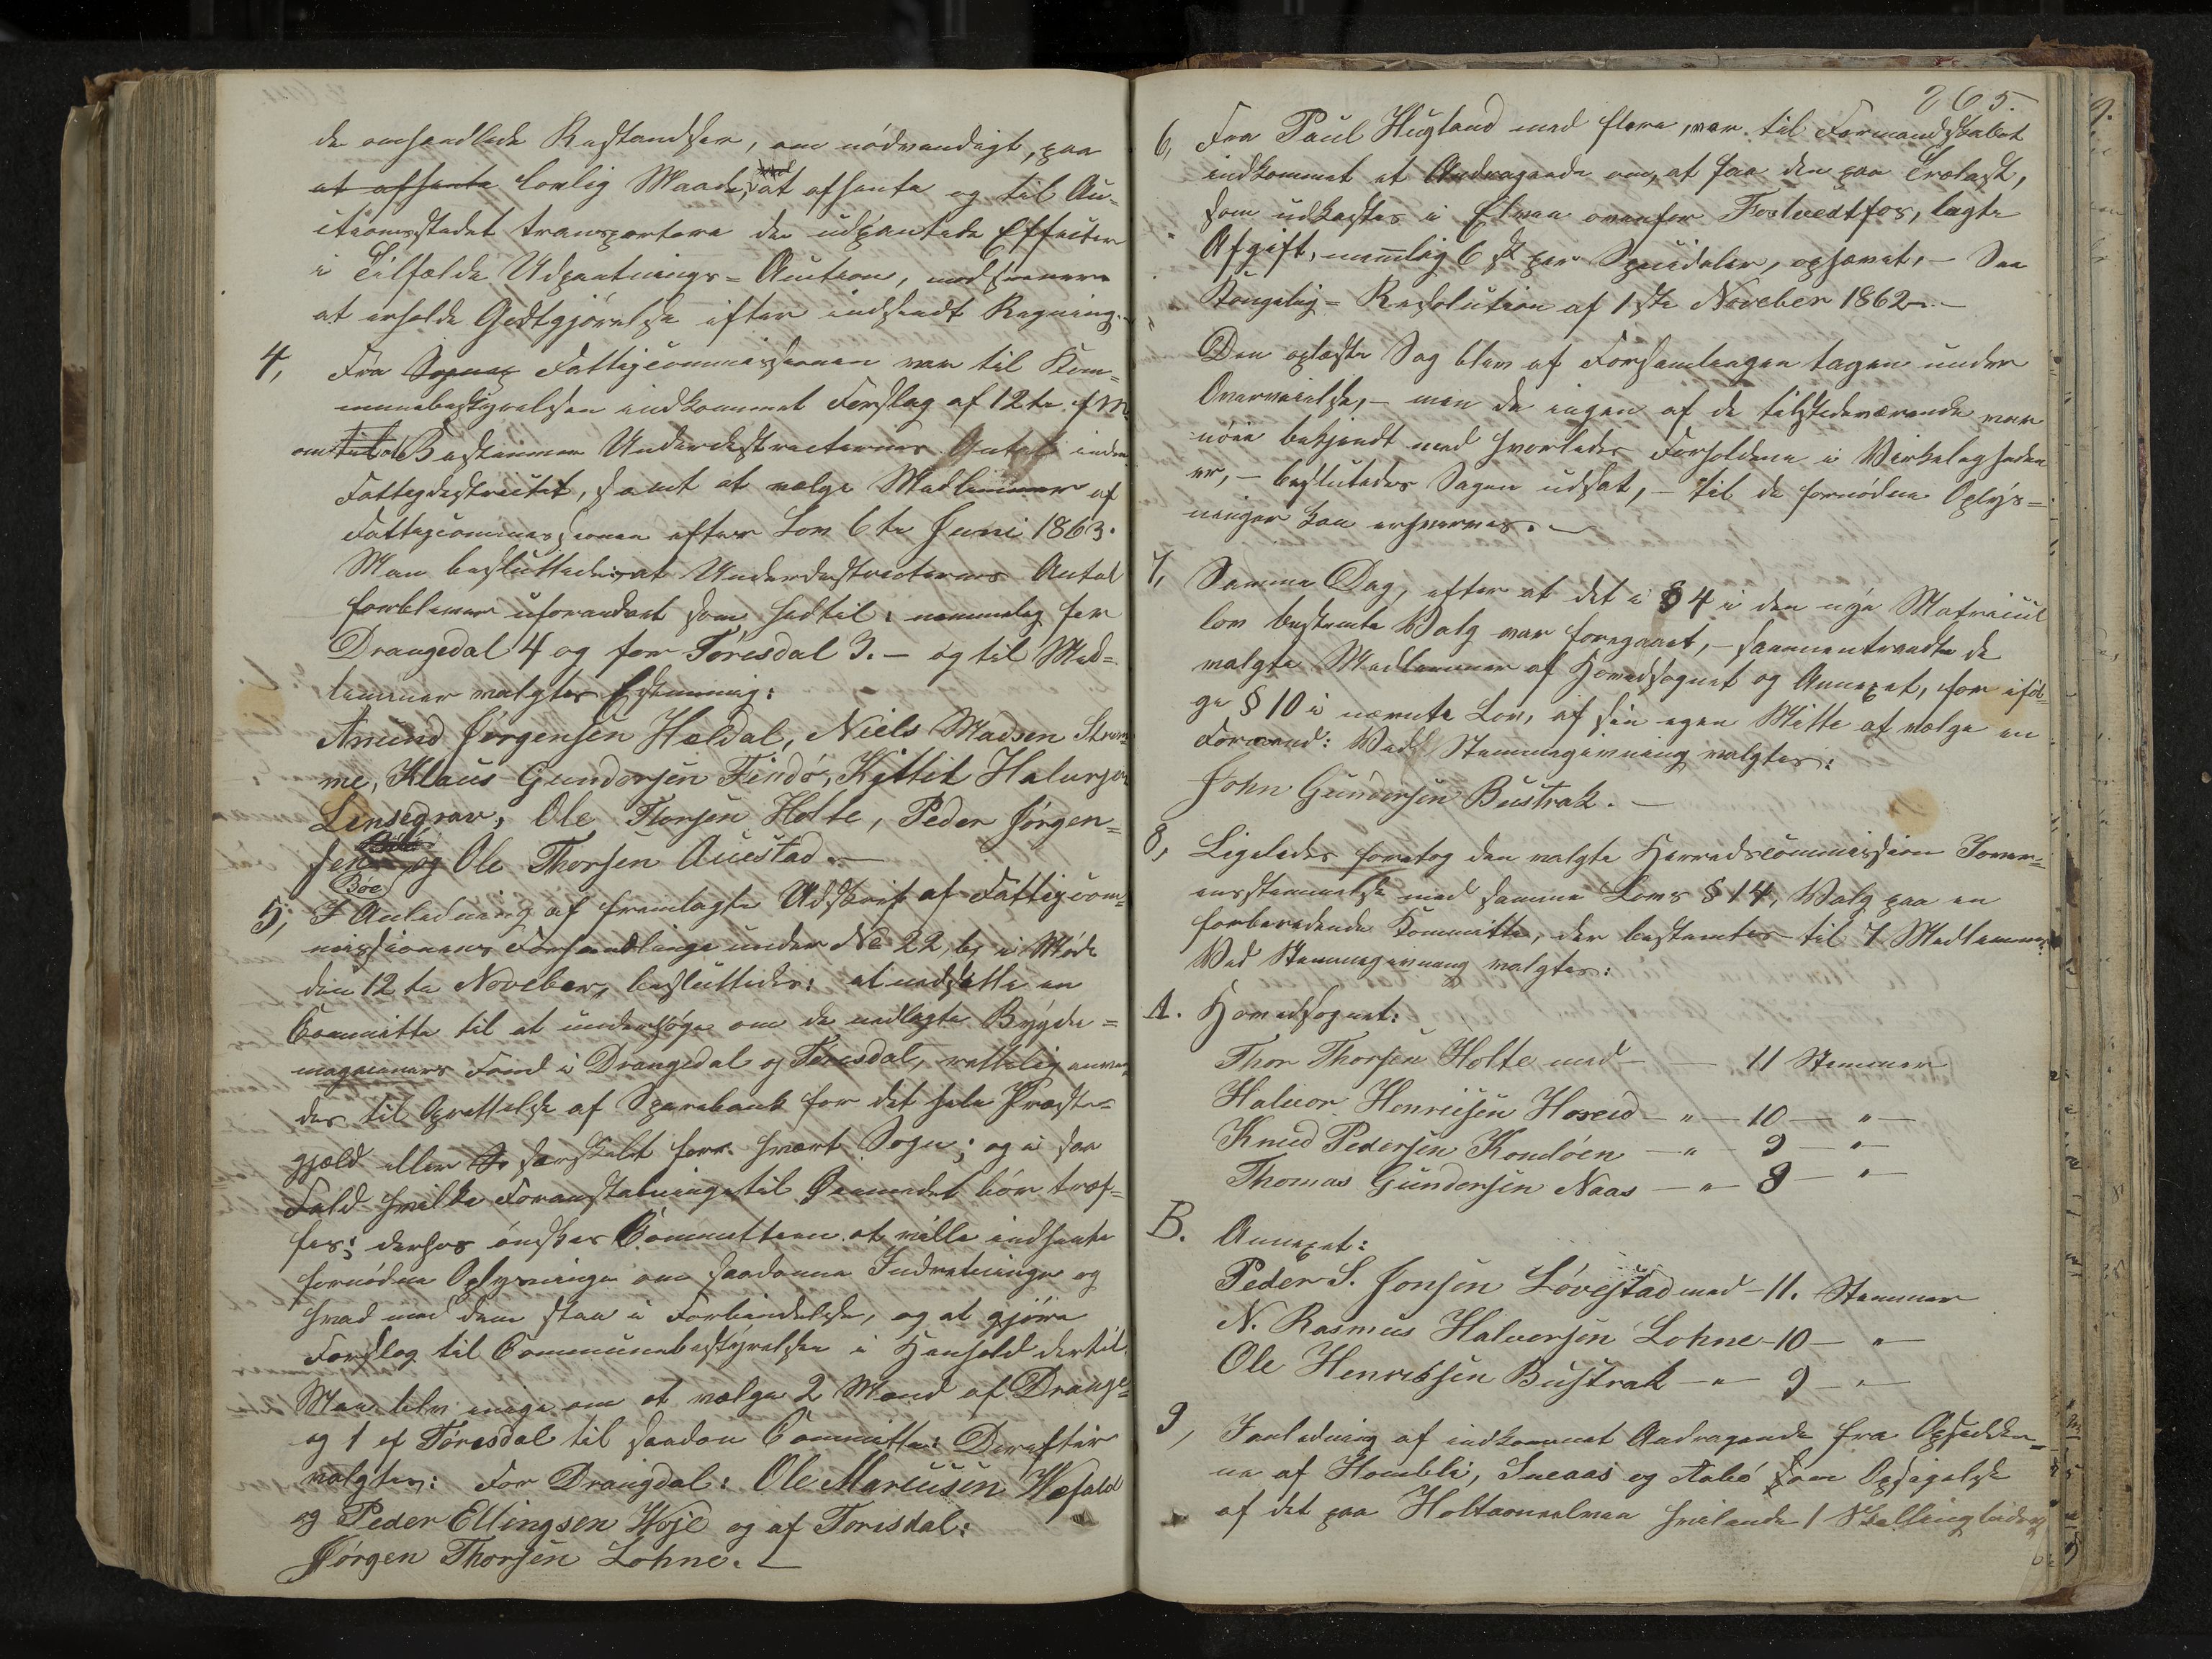 de omhandlede Restandser, om nödvendigt, paa
at afhente lovlig Maade, at afhente og til Au-
ctionsstedet transportere de udpantede Effecter
i Tilfælde Udpantnings-Auction, mod
at erholde Godtgjörelse efter indsendt Regning.
4, Fra Fattigcommissionen var til Kom-
munebestyrelsen indkommet Forslag af 12te f. M.
om at Bestemme Underdistricternes Antal inden
Fattigdistrictet, samt at vælge Medlemmer af
Fattigcommissionen efter Lov 6te Juni 1863.
Man besluttede: at Underdistricternes Antal
forbliver uforandret som hidtil: nemmelig for
Drangedal 4 og for Törisdal 3. – og til Med-
lemmer valgtes Estemmig:
Amund Jörgensen Heldal, Niels Madsen Strøm-
me, Klaus Gundersen Findö, Kittil Halvorsen
Lensegrav, Ole Thorsen Holte, Peder Jörgen-
sen Böe og Ole Thorsen Auestad. –
5, I Anledning af fremlagte Udskrift af Fattigcom-
missionens Forhandlinger under No 22, b, i Möde
den 12te Noveber, besluttedes: at nedsætte en
Committe til at undersöge om de nedlagte Bygde-
magasiners Fond i Drangedal og Törisdal, rettelig anven-
des til Oprettelse af Sparebank for det hele Præste-
gjæld eller særskilt for hvert Sogn; og i saa
Fald hvilke Foranstaltninger til Öiemedet bör træf-
fes; derhos önskes Committeen at ville indhente
fornödne Oplysninger om saadanne Indretninger og
hvad med dem staa i Forbindelse, og at gjöre
Forslag til Communebestyrelsen i Henhold dertil.
Man blev enige om at vælge 2 Mænd af Drange-
og 1 af Törisdal til saadan Committe: Derefter
valgtes: For Drangdal: Ole Marcusen Wefald
og Peder Ellingsen Woje og af Torisdal:
Jörgen Thorsen Lohne. –
265.
6, Fra Paul Hugland med flere, var til Formandskabet
indkommet et Andragende om, at faa den paa Trælast,
som udkastes i Elven ovenfor Fostvedtfos, lagte
Afgift, nemlig 6 sk per Speciedaler, ophævet, – See
Kongelig-Resolution af 1ste Noveber 1862. –
Den oplæste Sag blev af Forsamlingen tagen under
Overveielse, – men da ingen af de tilstedeværende var
nöie bekjendt med hvorledes Forholdene i Virkeligheden
er, – beslutedes Sagen udsat, – til de fornödne Oplys-
ninger kan erhverves. –
7, Samme Dag, efter at det i § 4 i den nye Matricul
lov bestemte Valg var foregaaet, – sammentraadte de
valgte Medlemmer af Hovedsognet og Annexet, for iföl-
ge § 10 i nævnte Lov, af sin egen Mitte at vælge en
Formand: Ved Stemmegivning valgtes:
John Gundersen Bustrak. –
8, Ligeledes foretog den valgte Herredscommission Iover-
ensstemmelse med samme Lovs § 14, Valg paa en
forberedende Committe, der bestemtes til 7 Medlemmer.
Ved Stemmegivning valgtes:
A. Hovedsognet:
Thor Thorsen Holte med – – 11 Stemmer
Halvor Henricsen Hoseid – " – 10 – " –
Knud Pedersen Homlöen – " – 9 – " –
Thomas Gundersen Naas – " – 8 – " –
B. Annexet:
Peder S. Jonsen Lövestad med – 11. Stemmer
N. Rasmus Halvorsen Lohne – 10 – "
Ole Henriksen Bustrak – " – 9 – " –
9, Ianledning af indkommet Andragende fra Opsidder-
ne af Hombli, Sneaas og Aabö som Opsigelse
af det paa Holtaoeelven hvilende 1 Skilling bidrag